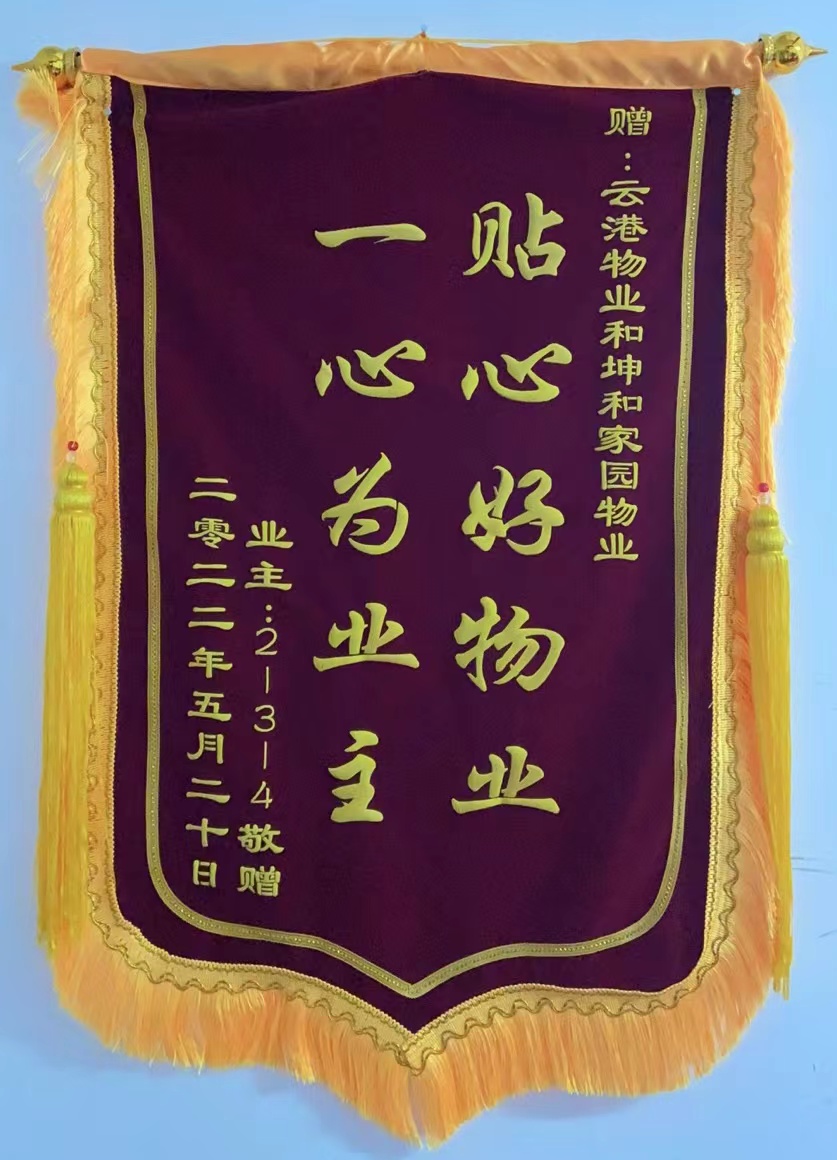 赠：云港物业和坤和家园物业
贴心好物业
一心为业主
业主：2-3-4敬赠
二零二二年五月二十日